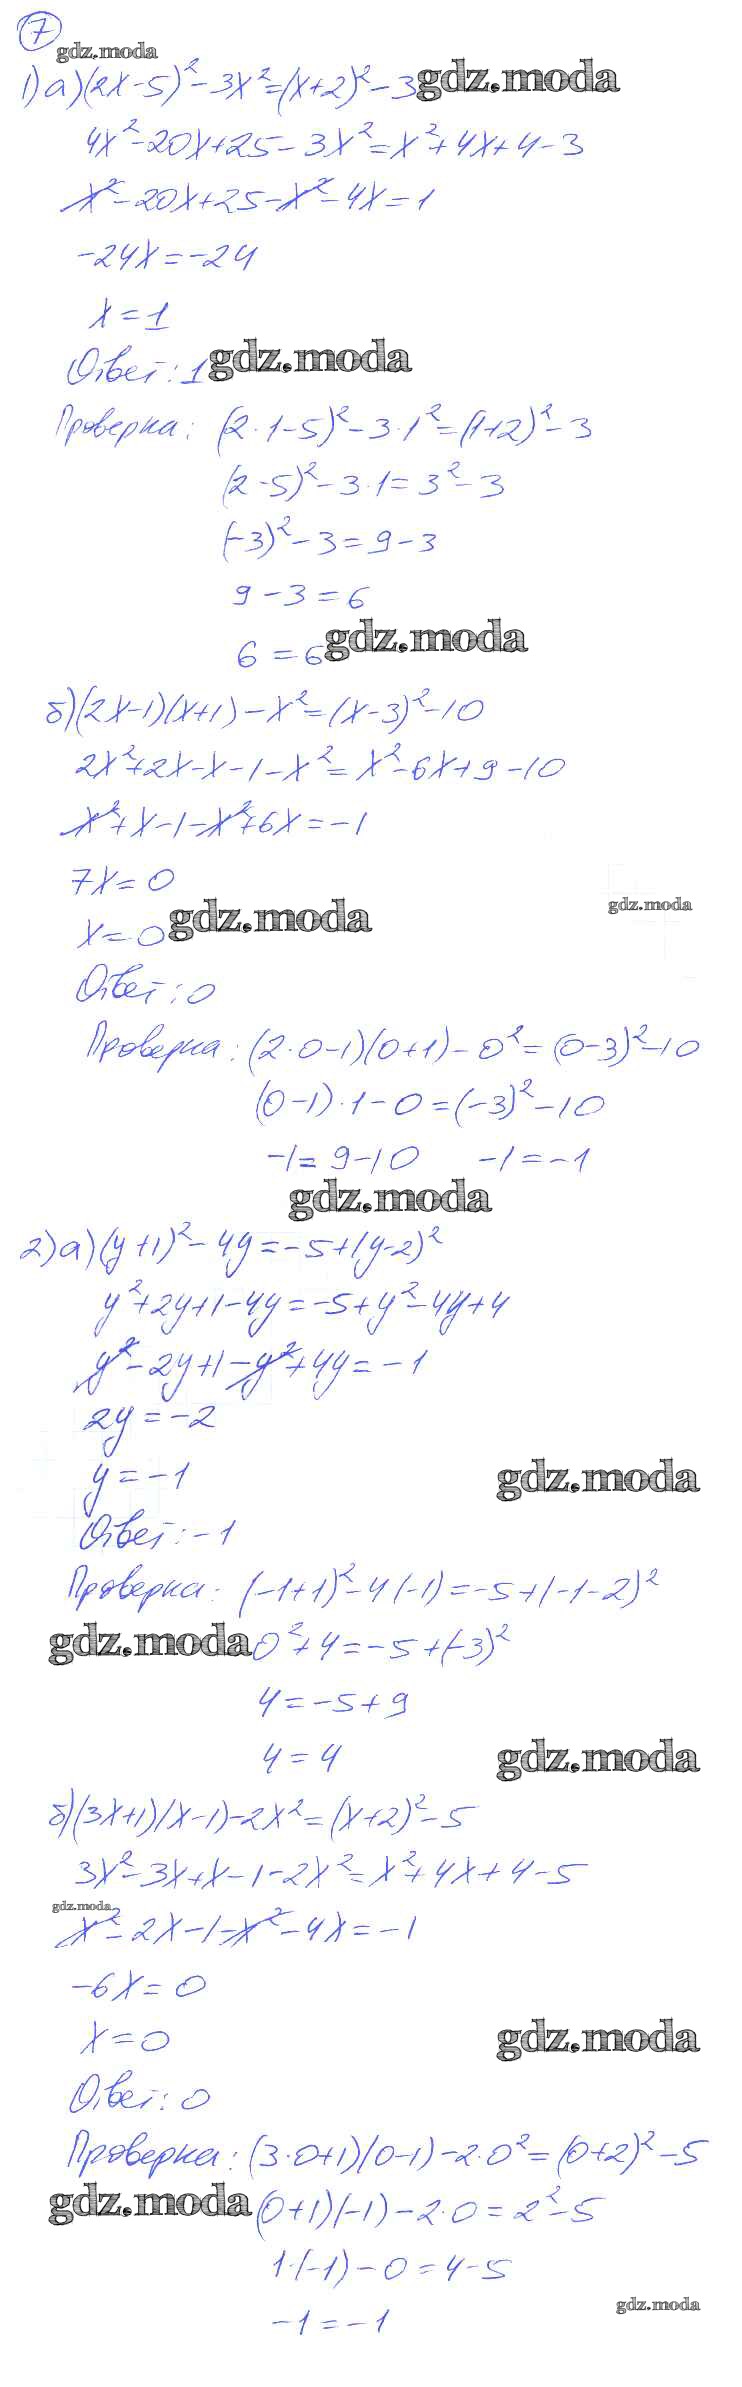 7
gdz.moda
1) а) (2x-5)² - 3x² = (x+2)² - 3 gdz.moda
4x² - 20x + 25 - 3x² = x² + 4x + 4 - 3
x² - 20x + 25 - x² - 4x = 1
-24x = -24
x = 1
Ответ: 1 gdz.moda
Проверка: (2·1-5)² - 3·1² = (1+2)² - 3
(2-5)² - 3·1 = 3² - 3
(-3)² - 3 = 9 - 3
9 - 3 = 6
6 = 6 gdz.moda
б) (2x-1)(x+1) - x² = (x-3)² - 10
2x² + 2x - x - 1 - x² = x² - 6x + 9 - 10
x² + x - 1 - x² + 6x = -1
7x = 0
x = 0 gdz.moda gdz.moda
Ответ: 0
Проверка: (2·0-1)(0+1) - 0² = (0-3)² - 10
(0-1)·1 - 0 = (-3)² - 10
-1 = 9 - 10 -1 = -1
gdz.moda
2) а) (y+1)² - 4y = -5 + (y-2)²
y² + 2y + 1 - 4y = -5 + y² - 4y + 4
y² - 2y + 1 - y² + 4y = -1
2y = -2
y = -1 gdz.moda
Ответ: -1
Проверка: (-1+1)² - 4(-1) = -5 + (-1-2)²
gdz.moda 0² + 4 = -5 + (-3)²
4 = -5 + 9
4 = 4 gdz.moda
б) (3x+1)(x-1) - 2x² = (x+2)² - 5
3x² - 3x + x - 1 - 2x² = x² + 4x + 4 - 5
gdz.moda
x² - 2x - 1 - x² - 4x = -1
-6x = 0
x = 0 gdz.moda
Ответ: 0
Проверка: (3·0+1)(0-1) - 2·0² = (0+2)² - 5
gdz.moda (0+1)(-1) - 2·0 = 2² - 5
1·(-1) - 0 = 4 - 5
-1 = -1 gdz.moda